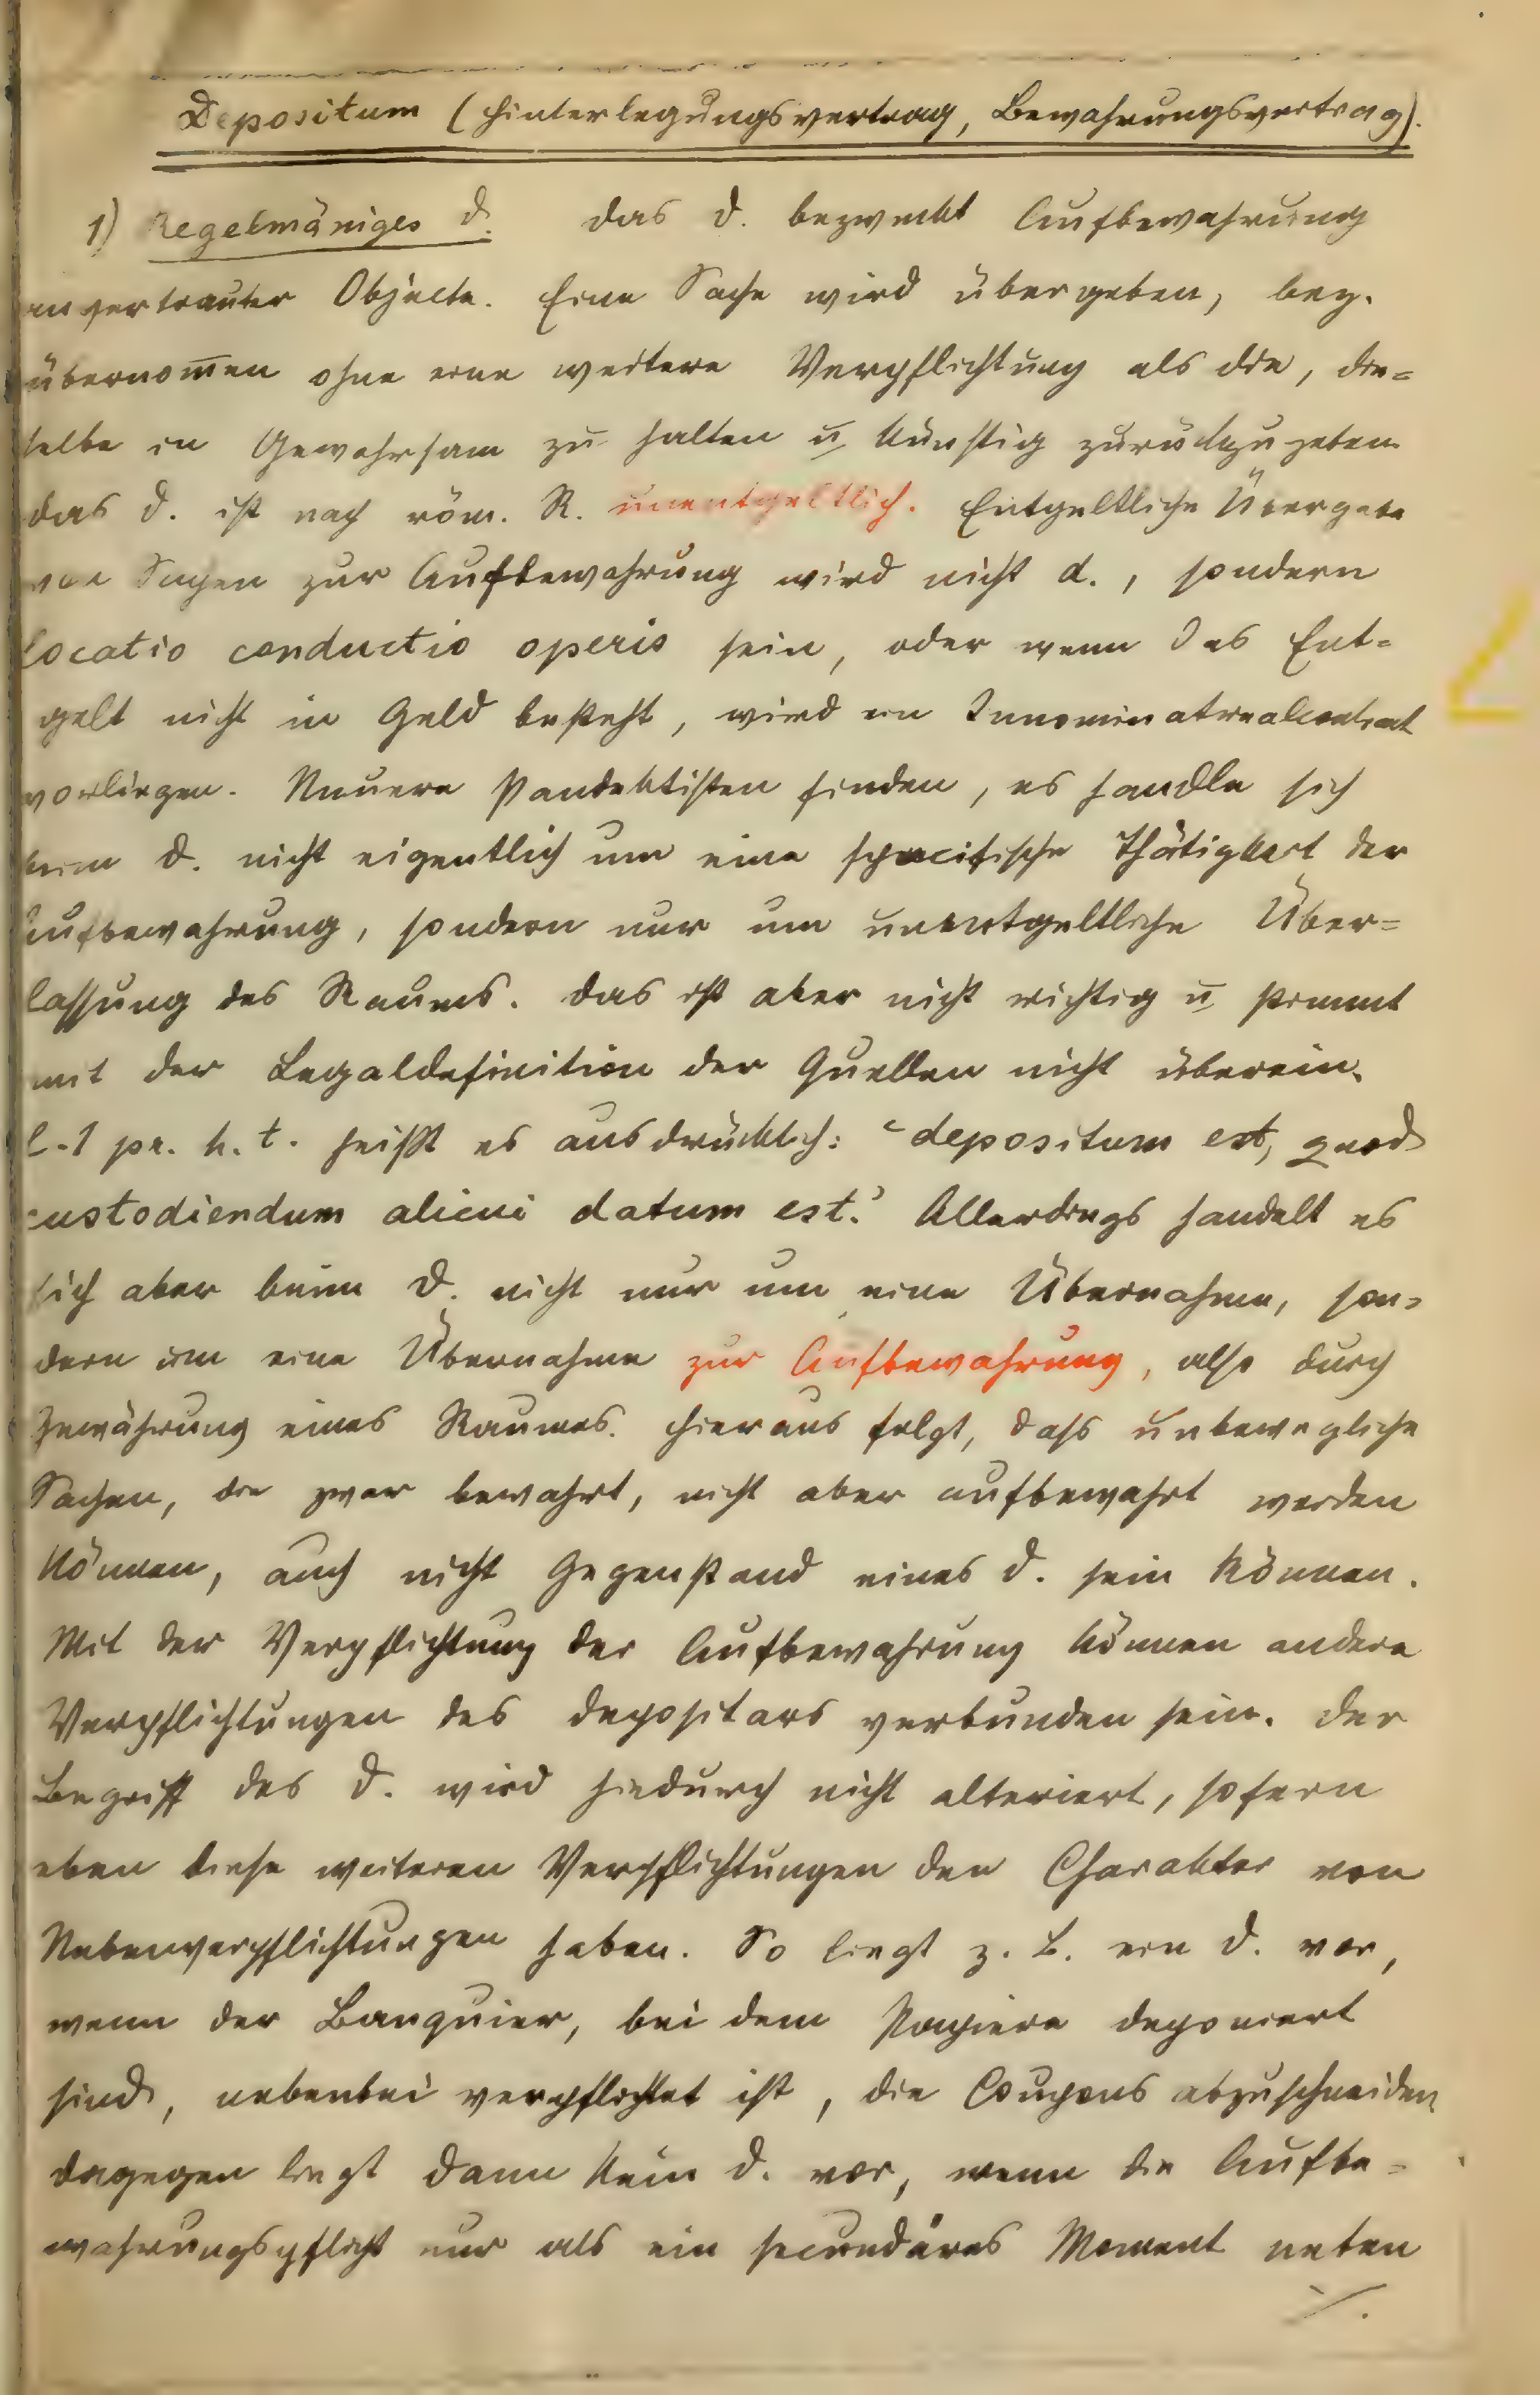 Depositum (Hinterlegungsvertrag, Bewahrungsvertrag).
1) Regelmäßiges d. Das d. bezweckt Aufbewahrung
anvertrauter Objecte. Eine Sache wird übergeben, bez.
übernom̅en ohne eine weitere Verpflichtung als die, die=
selbe in Gewahrsam zu halten u. künftig zurückzugeben.
Das d. ist nach röm. R. unentgeltlich. Entgeltliche Übergabe
von Sachen zur Aufbewahrung wird nicht d., sondern
locatio conductio operis sein, oder wenn das Ent=
gelt nicht in Geld besteht, wird ein Innominatrealcontract
vorliegen. Neuere Pandektisten finden, es handle sich
beim d. nicht eigentlich um eine specifische Thätigkeit der
Aufbewahrung, sondern nur um unentgeltliche Über=
lassung des Raums. Das ist aber nicht richtig u. stimmt
mit der Legaldefinition der Quellen nicht überein.
l. 1 pr. h. t. heißt es ausdrücklich: "depositum est, quod
custodiendum alicui datum est." Allerdings handelt es
sich aber beim d. nicht nur um eine Übernahme, son=
dern um eine Übernahme zur Aufbewahrung, also durch
Gewährung eines Raumes. Hieraus folgt, dass unbewegliche
Sachen, die zwar bewahrt, nicht aber aufbewahrt werden
können, auch nicht Gegenstand eines d. sein können.
Mit der Verpflichtung der Aufbewahrung können andere
Verpflichtungen des Depositars verbunden sein. Der
Begriff des d. wird hiedurch nicht alteriert, sofern
eben diese weiteren Verpflichtungen den Charakter von
Nebenverpflichtungen haben. So liegt z. B. ein d. vor,
wenn der Banquier, bei dem Papiere deponiert
sind, nebenbei verpflichtet ist, die Coupons abzuschneiden
dagegen liegt dann kein d. vor, wenn die Aufbe=
wahrungspflicht nur als ein secundäres Moment neben
./.